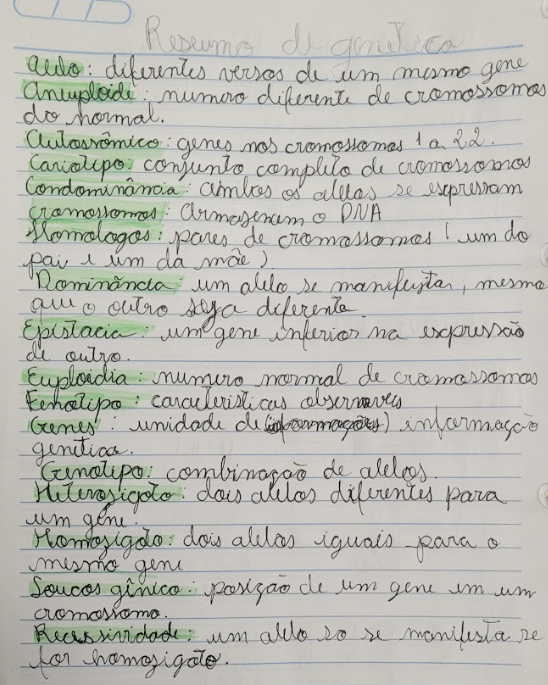 Resumo de genetica
alelo: diferentes versos de um mesmo gene
Aneuploide: numero diferente de cromossomos
do normal.
Autossômico: genes nos cromossomos 1 a 22.
Cariotipo: conjunto completo de cromossomos
Condominância: ambos os alelos se expressam
cromossomos: armazenam o DNA
Homologos: pares de cromossomos (um do
pai e um da mãe)
Dominância: um alelo se manifesta, mesmo
que o outro seja diferente.
Epistacia: um gene inferior na expressão
de outro.
Euploidia: numero normal de cromossomos
Fenotipo: caracteristicas observaveis
Genes: unidade de (informações) informação
genetica.
Genotipo: combinação de alelos.
Heterosigoto: dois alelos diferentes para
um gene.
Homosigoto: dois alelos iguais para o
mesmo gene
Loucos gênico: posição de um gene em um
cromossomo.
Recessividade: um alelo so se manifesta se
for homozigoto.